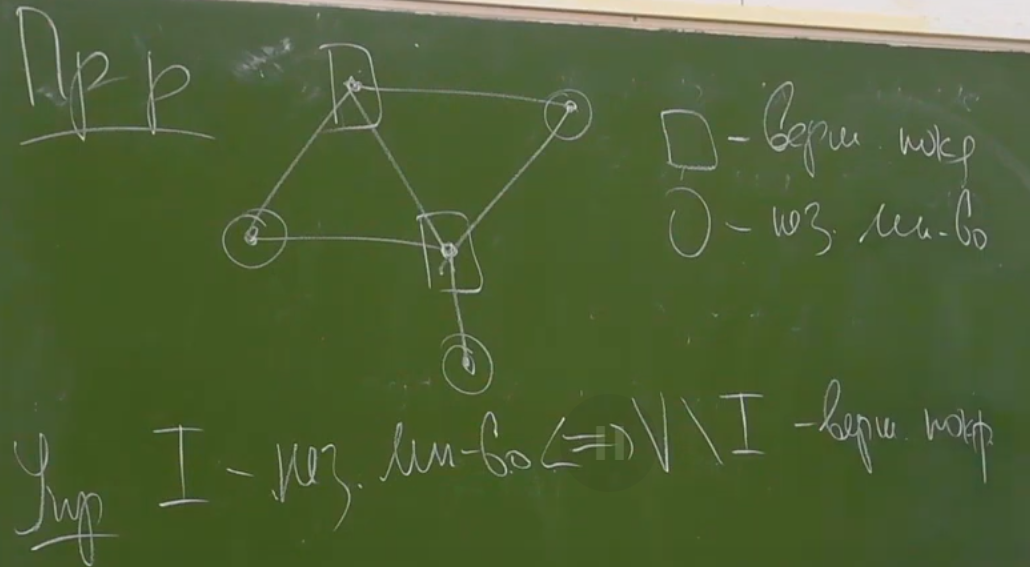 Пр р
□ - верш. покр
○ - нез. мн-во
Упр I - нез. мн-во <=> V \ I - верш. покр